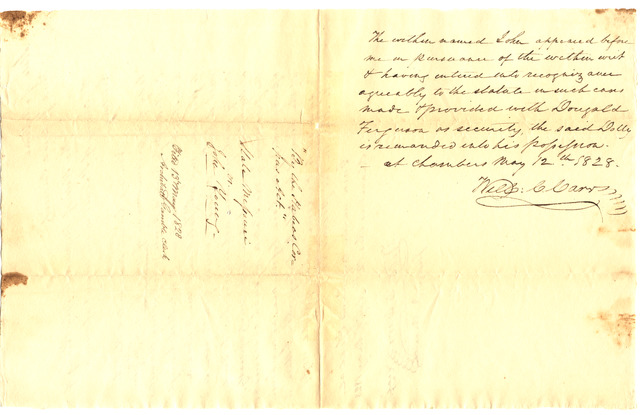 The within named John appeared before
me in pursuance of the within writ
& having entered into recognizance
agreeably to the statute in such cases
made & provided with Dougald
Ferguson as security, the said Dolly
is remanded into his possession.
at chambers May 12th 1828.
Will: C Carr
Habeas Cor
State Missouri
vs
John
Filed 13th May 1828
Archibald Gamble clerk